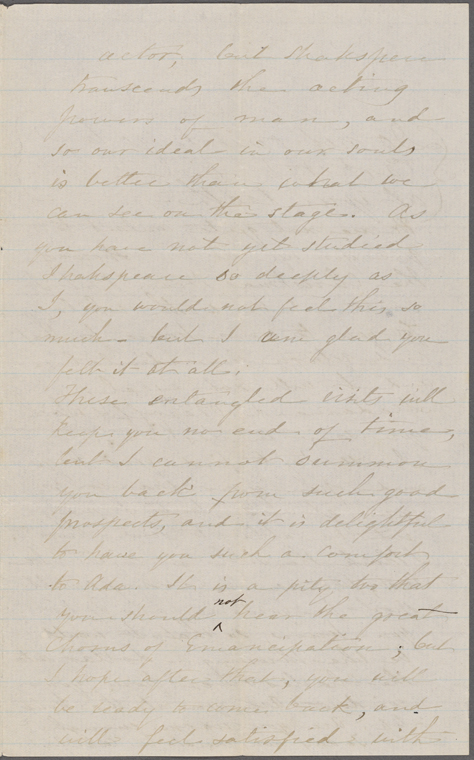 actor, but Shakspeare
transcends the acting
powers of man, and
so our ideal in our souls
is better than what we
can see on the stage. As
you have not yet studied
Shakspeare so deeply as
I, you would not feel this so
much but I am glad you
felt it at all.
These entangled visits will
keep you no end of time,
but I cannot summon
you back from such good
prospects, and it is delightful
to have you such a comfort
to Ada. It is a pity too that
you should not hear the great
Chorus of Emancipation; but
I hope after that, you will
be ready to come back, and
will feel satisfied with